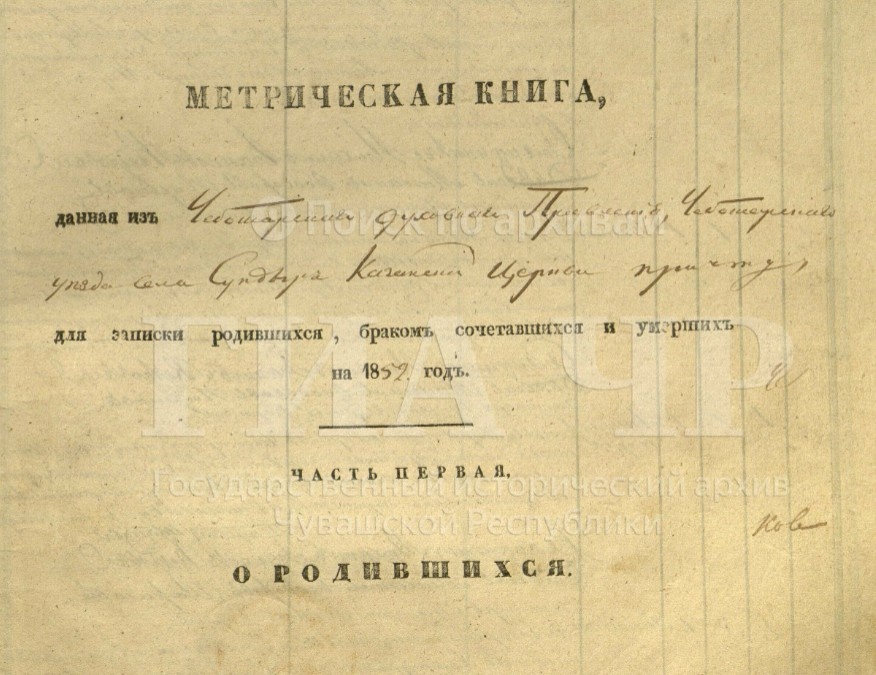 МЕТРИЧЕСКАЯ КНИГА,
данная изъ Чебоксарскаго духовнаго Правленія, Чебоксарскаго
уѣзда села Сундыря Казанской Церкви причту,
для записки родившихся, бракомъ сочетавшихся и умершихъ
на 1852 годъ.
ЧАСТЬ ПЕРВАЯ.
О РОДИВШИХСЯ.
Поиск по архивам
ГИА ЧР
Государственный исторический архив
Чувашской Республики